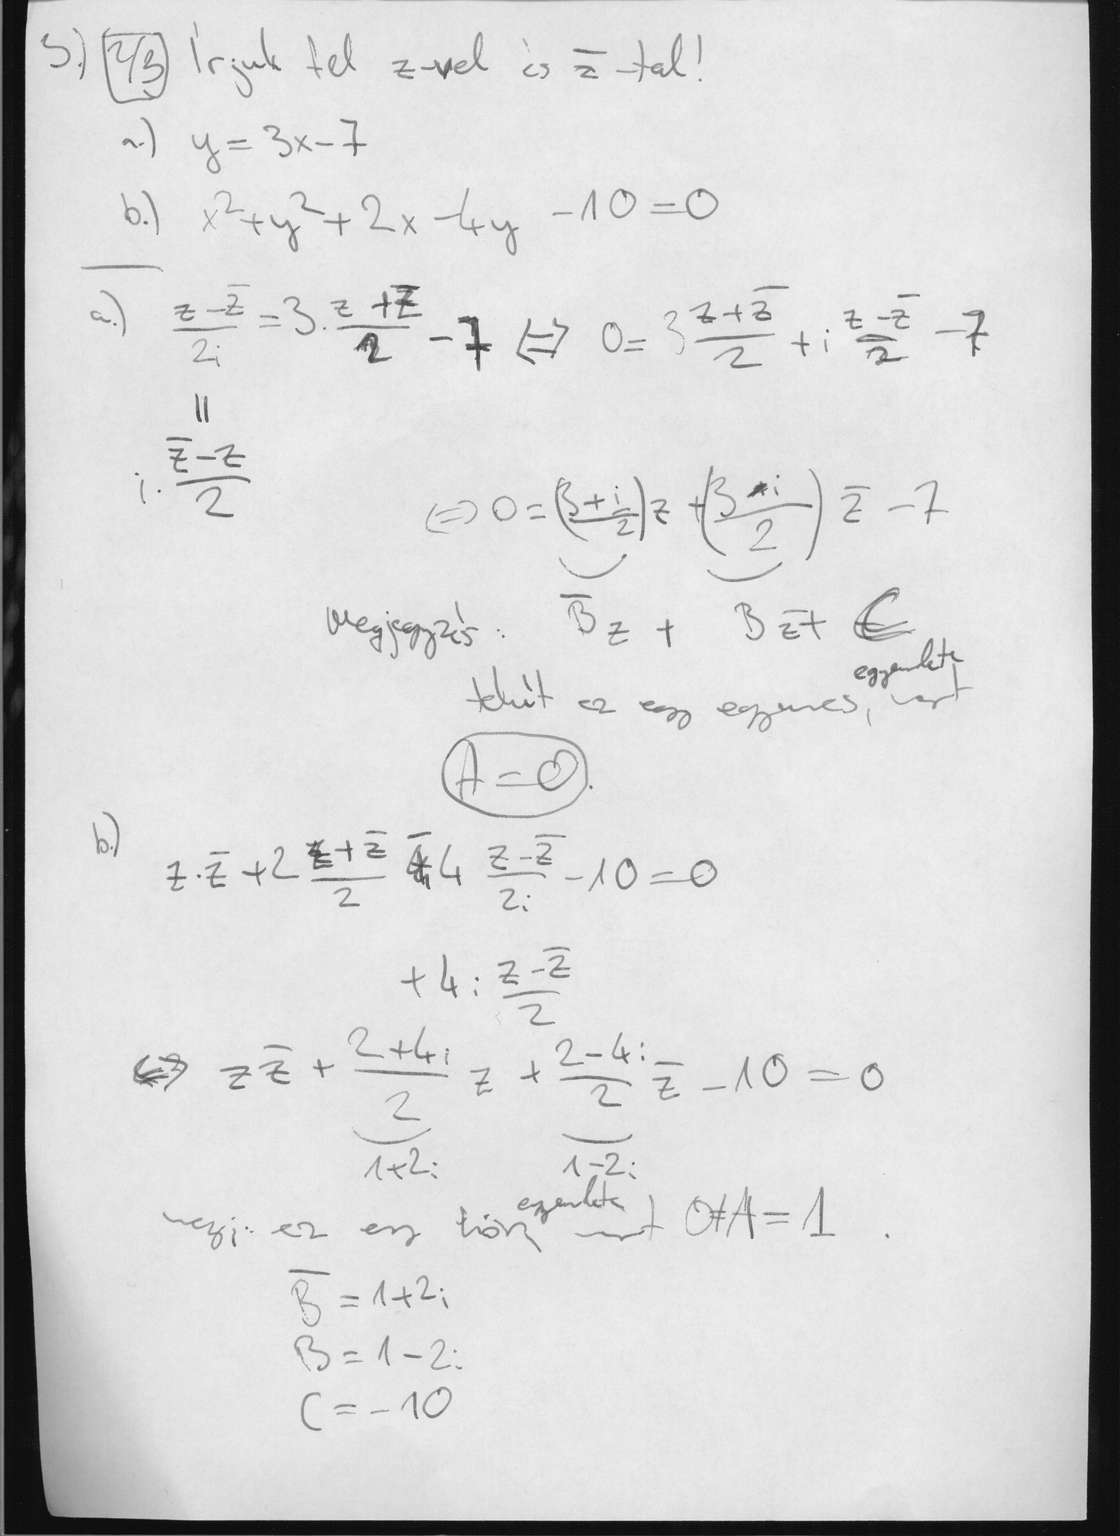 3.) 2/3 Írjuk fel z-vel és z̅-tal!
a.) y = 3x-7
b.) x²+y²+2x-4y -10=0
a.) (z-z̅)/2i = 3·(z+z̅)/2 - 7 ⇔ 0 = 3 (z+z̅)/2 + i (z-z̅)/2 - 7
=
i·(z̅-z)/2
⇔ 0 = ((3+i)/2) z + ((3-i)/2) z̅ - 7
Megjegyzés: B̅z + Bz̅ + C
tehát ez egy egyenes egyenlete, mert
A=0.
b.)
z·z̅ + 2 (z+z̅)/2 - 4 (z-z̅)/2i - 10 = 0
+4i (z-z̅)/2
⇔ zz̅ + (2+4i)/2 z + (2-4i)/2 z̅ - 10 = 0
1+2i 1-2i
megj: ez egy kör egyenlete mert 0≠A=1.
B̅ = 1+2i
B = 1-2i
C = -10